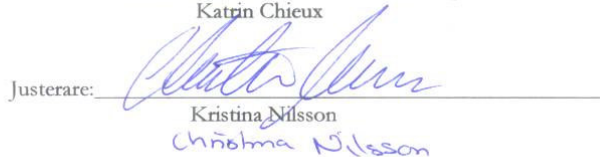 Katrin Chieux
Justerare:
Kristina Nilsson
Christina Nilsson